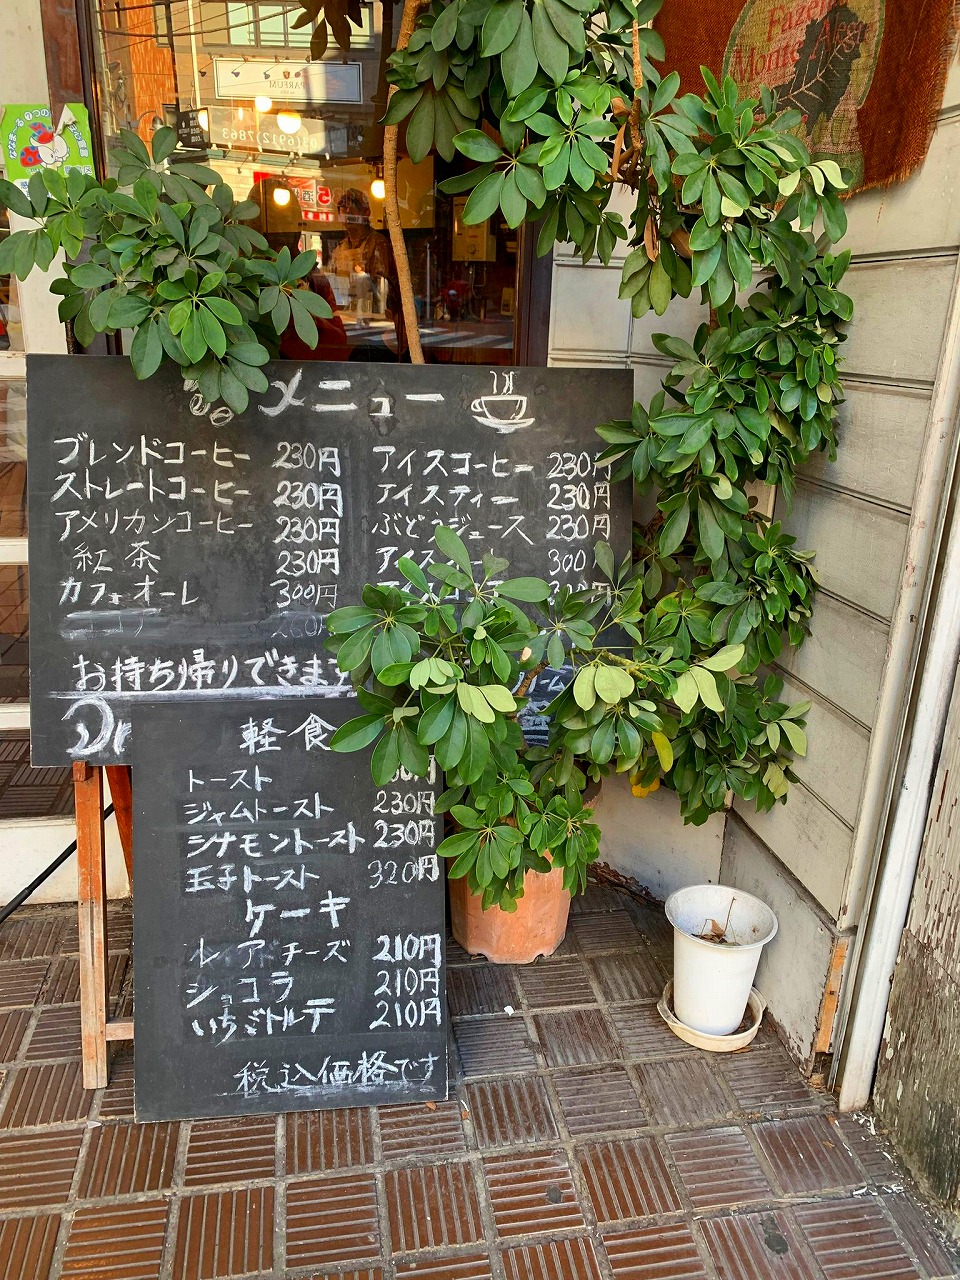 メニュー
ブレンドコーヒー 230円
ストレートコーヒー 230円
アメリカンコーヒー 230円
紅茶 230円
カフェオーレ 300円
アイスコーヒー 230円
アイスティー 230円
ぶどうジュース 230円
300
お持ち帰りできます
軽食
トースト
ジャムトースト 230円
シナモントースト 230円
玉子トースト 320円
ケーキ
レアチーズ 210円
ショコラ 210円
いちごトルテ 210円
税込価格です